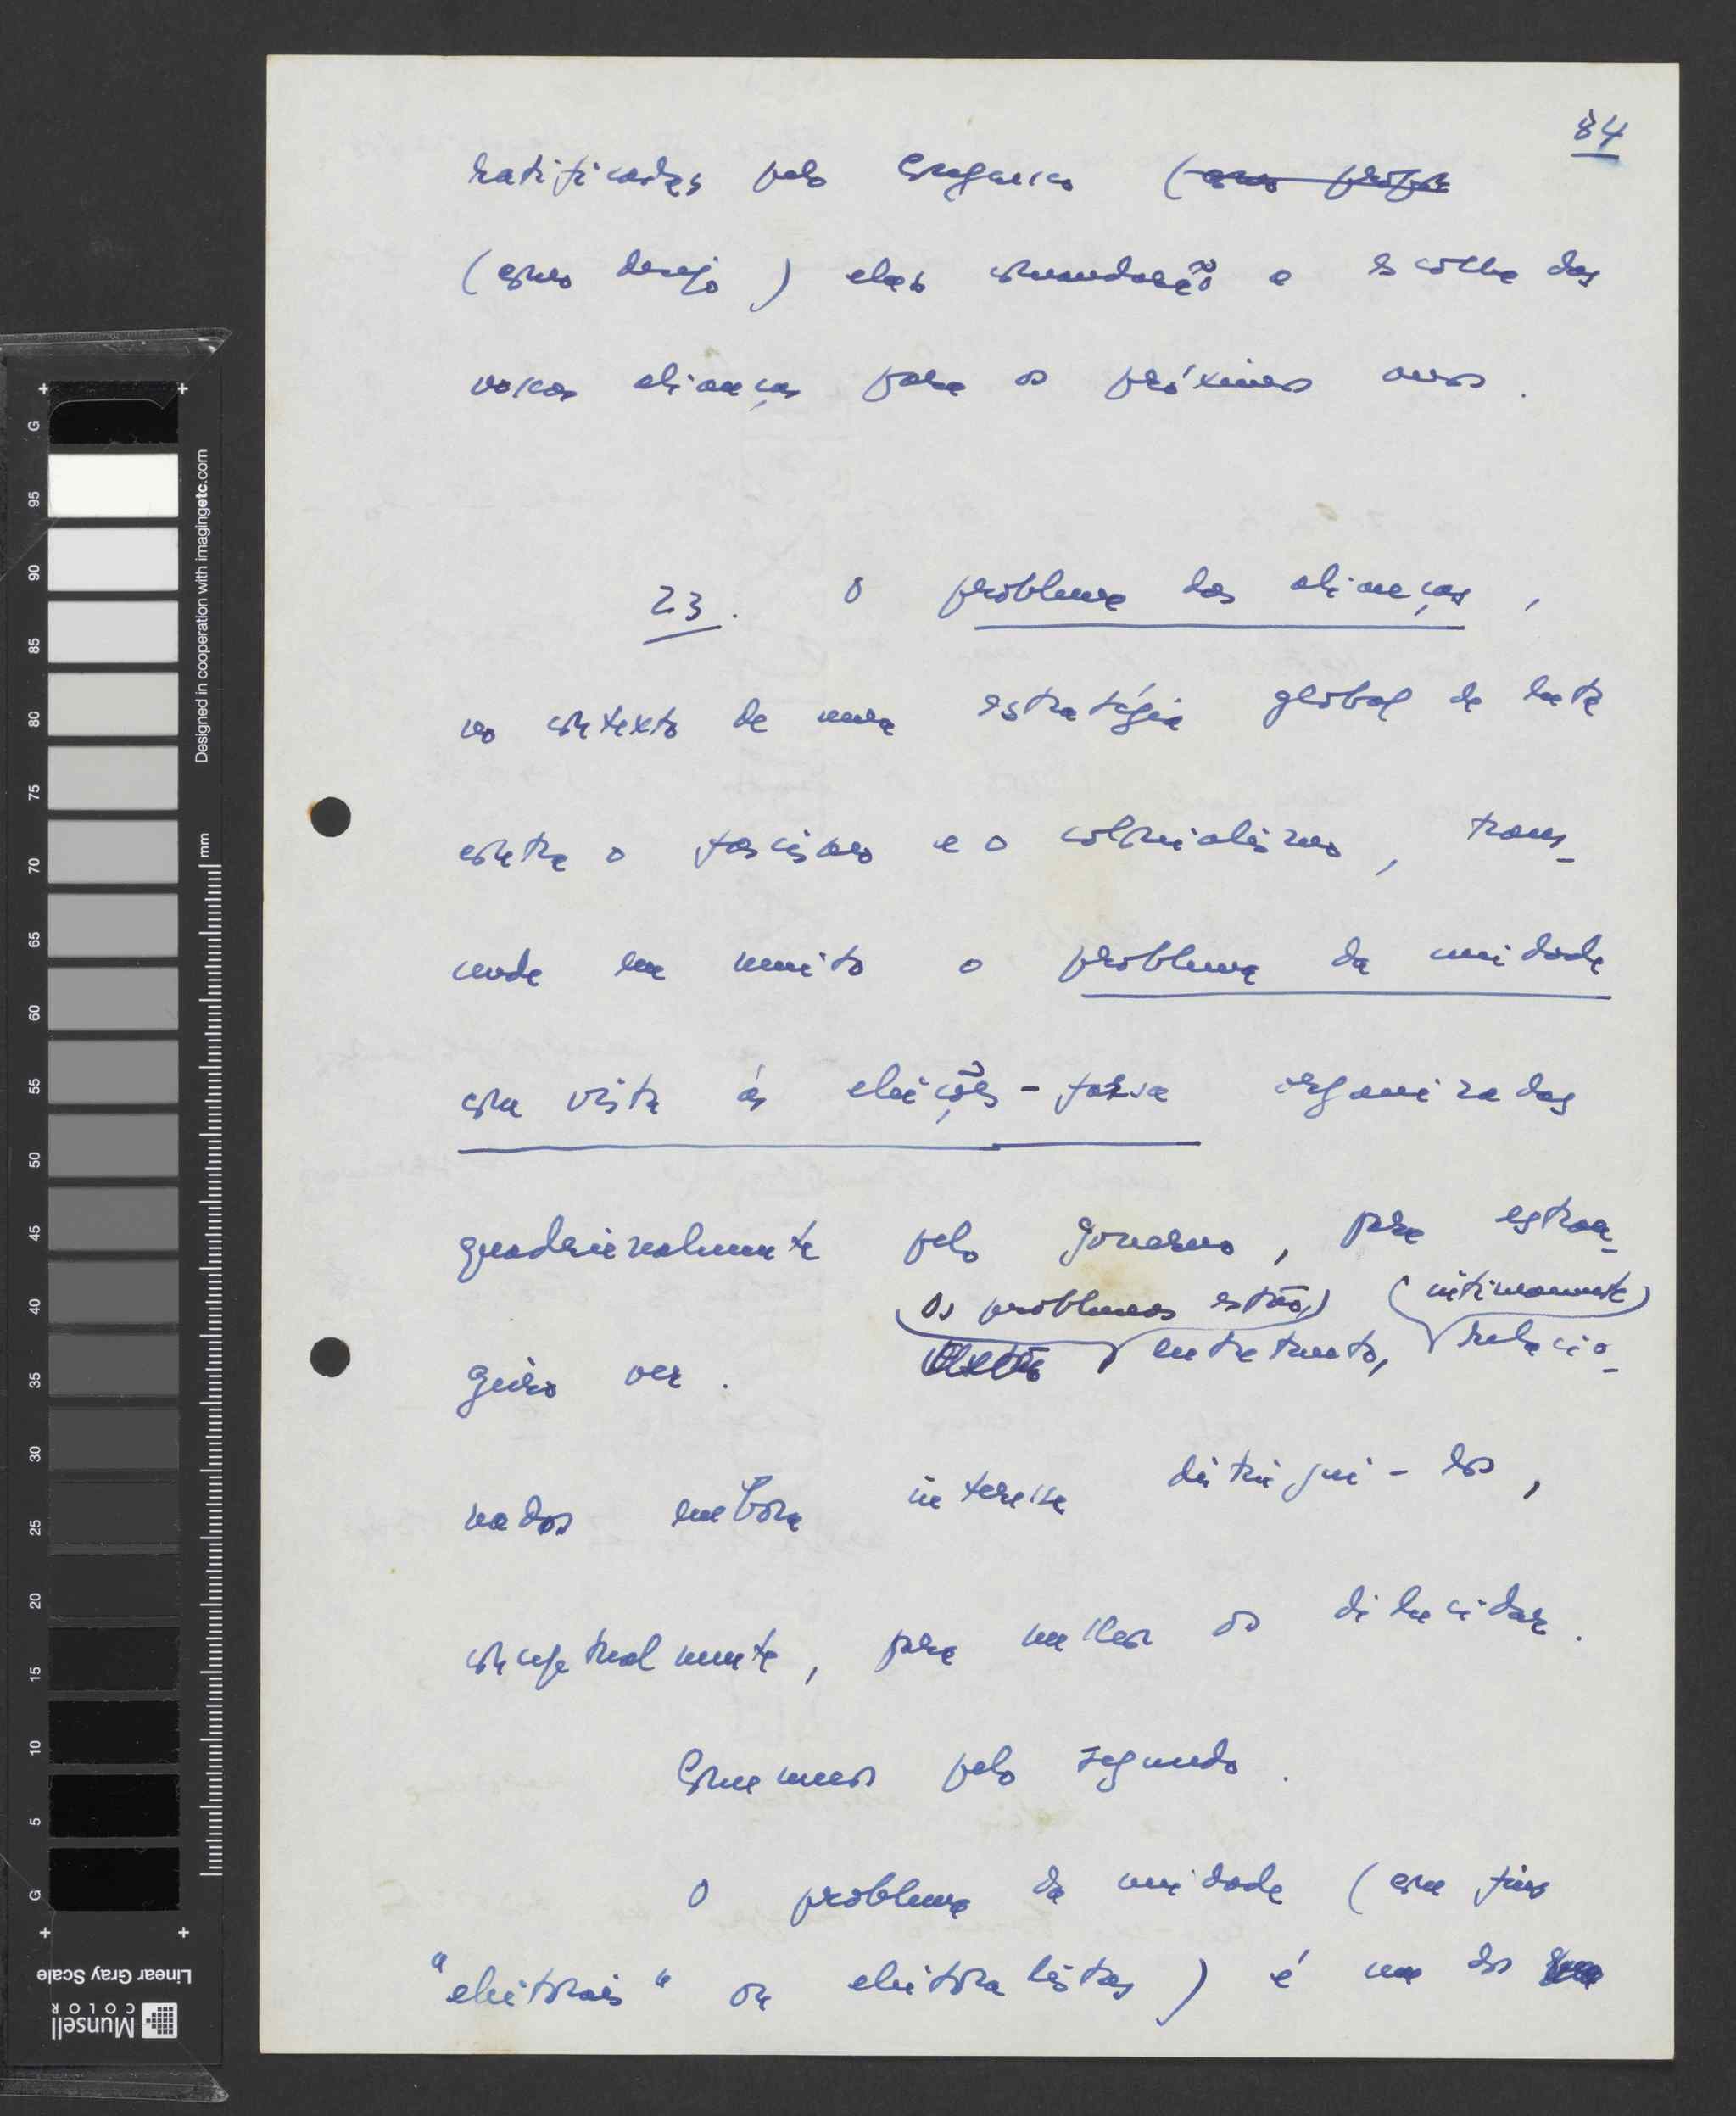 84
ratificadas pelo Congresso (como propor
(como desejo) elas comandarão a escolha das
nossas alianças para os próximos anos.
23. O problema das alianças,
no contexto de uma estratégia global de luta
contra o fascismo e o colonialismo, trans-
cende em muito o problema da unidade
com vista às eleições-farsa organizadas
quadrienalmente pelo governo, para estran-
(os problemas estão) (intimamente)
geiro ver. entretanto, relacio-
nados embora interesse distingui-los,
conceptualmente, para melhor os dilucidar.
Comecemos pelo segundo.
O problema da unidade (com fins
"eleitorais" ou eleitoralistas) é um dos
G 95 90 85 80 75 70 65 60 55 50 45 40 35 30 25 20 15 10 5 G
Designed in cooperation with imagingetc.com
mm
Linear Gray Scale
Munsell
COLOR